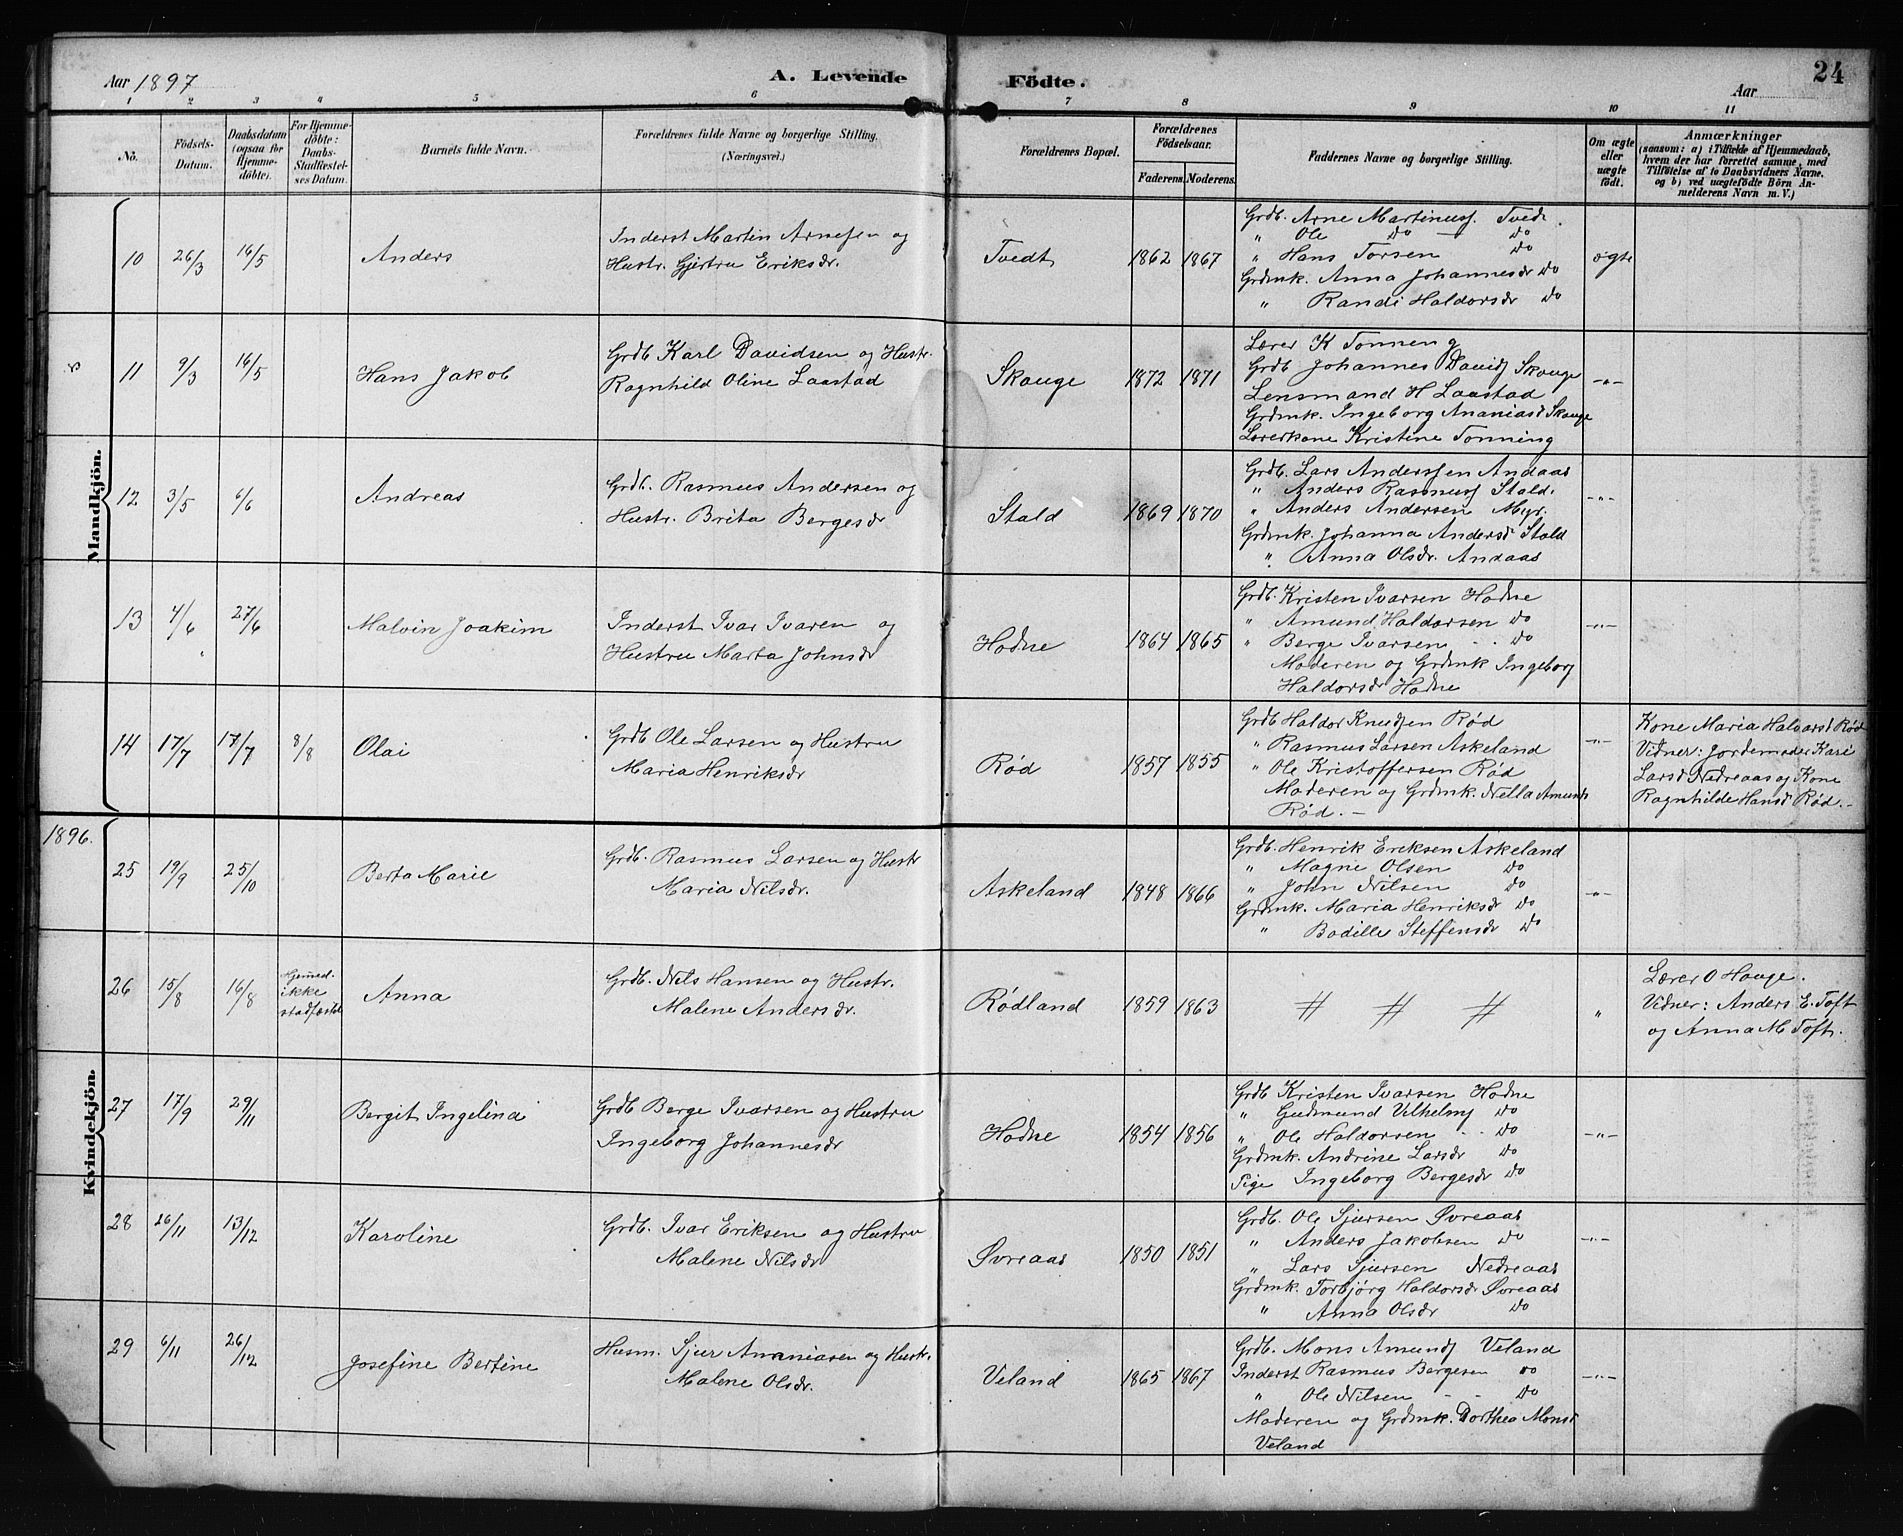 Aar 1897
A. Levende Födte.
Aar
24
1 2 3 4 5 6 7 8 9 10 11
No.
Födsels-Datum.
Daabsdatum (ogsaa för Hjemmedöbte).
For Hjemmedöbte: Daabs-Stadfestelses Datum.
Barnets fulde Navn.
Forældrenes fulde Navne og borgerlige Stilling. (Næringsvei.)
Forældrenes Bopæl.
Forældrenes Födselsaar.
Faderens. Moderens.
Faddernes Navne og borgerlige Stilling.
Om ægte eller uægte födt.
Anmærkninger
(saasom: a) i Tilfælde af Hjemmedaab,
hvem der har forrettet samme, med
Tilföielse af to Daabsvidners Navne,
og b) ved uægtefödte Börn Anmelderens Navn m. V.)
Mandkjön.
10 26/3 16/5 Anders
Inderst Martin Arnesen og
Hustr. Gjertru Eriksdr.
Tvedt 1862 1867
Grdb. Arne Martinusf. Tvedt
" Ole Do — Do
" Hans Torsen Do
Grdmk. Anna Johannesdr Do
" Randi Haldorsdr Do
ægte
11 9/3 16/5 Hans Jakob
Grdb Karl Davidsen og Hustr.
Ragnhild Oline Laastad
Skauge 1872 1871
Lærer K Tonning
Grdb Johannes Davidf Skauge
Lensmand H Laastad
Grdmk. Ingeborg Ananiasd Skauge
Lærerkone Kristine Tonning
-"-
12 3/5 6/6 Andreas
Grdb. Rasmus Andersen og
Hustr. Brita Bergesdr
Stald 1869 1870
Grdb. Lars Anderssen Andaas
" Anders Rasmusf Stald.
" Anders Andersen Myr.
Grdmk. Johanna Andersd Stald
" Anna Olsdr. Andaas
-"-
13 4/6 27/6 Malvin Joakim
Inderst Ivar Ivaren og
Hustru Marta Johnsdr
Hodne 1864 1865
Grdb. Kristen Ivarsen Hodne
" Amund Haldorsen Do
" Berge Ivarsen - - Do
Moderen og Grdmk Ingeborg
Haldorsdr Hodne
-"-
14 17/7 17/7 8/8 Olai
Grdb Ole Larsen og Hustru
Maria Henriksdr
Rød 1857 1855
Grdb Haldor Knudsen Rød
" Rasmus Larsen Askeland
" Ole Kristoffersen Rød
Moderen og Grdmk. Nella Amunds
Rød. -
-"-
Kone Maria Halvarsd Rød
Vidner: Jordemoder Kari
Larsd Nedreaas og Kone
Ragnhilde Hansd Rød. -
1896.
Kvindekjön.
25 19/9 25/10 Berta Marie
Grdb. Rasmus Larsen og Hustr
Maria Nilsdr.
Askeland 1848 1866
Grdb. Henrik Eriksen Askeland
" Magne Olsen Do
" John Nilsen Do
Grdmk. Maria Henriksdr Do
" Bodille Steffensdr Do
-"-
26 15/8 16/8 Hjemmed. ikke stadfæstet Anna
Grdb. Nils Hansen og Hustr.
Malene Andersdr.
Rødland 1859 1863
# # #
"
Lærer O Hauge.
Vidner: Anders E. Toft
og Anna M Toft.
27 17/9 29/11 Bergit Ingelina
Grdb Berge Ivarsen og Hustru
Ingeborg Johannesdr
Hodne 1854 1856
Grdb Kristen Ivarsen Hodne
" Gudmund Vilhelmf Do
" Ole Haldorsen - - Do
Grdmk. Andrine Larsdr Do
Pige Ingeborg Bergesdr Do
-"-
28 26/11 13/12 Karoline
Grdb. Ivar Eriksen og Hustru
Malene Nilsdr
Øvreaas 1850 1851
Grdb. Ole Sjursen Øvreaas
" Anders Jakobsen Do
" Lars Sjursen Nedreaas
Grdmk. Torbjørg Haldorsdr Øvreaas
" Anna Olsdr Do
-"-
29 6/11 26/12 Josefine Bertine
Husm. Sjur Ananiasen og Hustr.
Malene Olsdr.
Veland 1865 1867
Grdb. Mons Amundf Veland
Inderst Rasmus Bergesen Do
" Ole Nilsen - - Do
Moderen og Grdmk. Dorthea Monsd
Veland
-"-